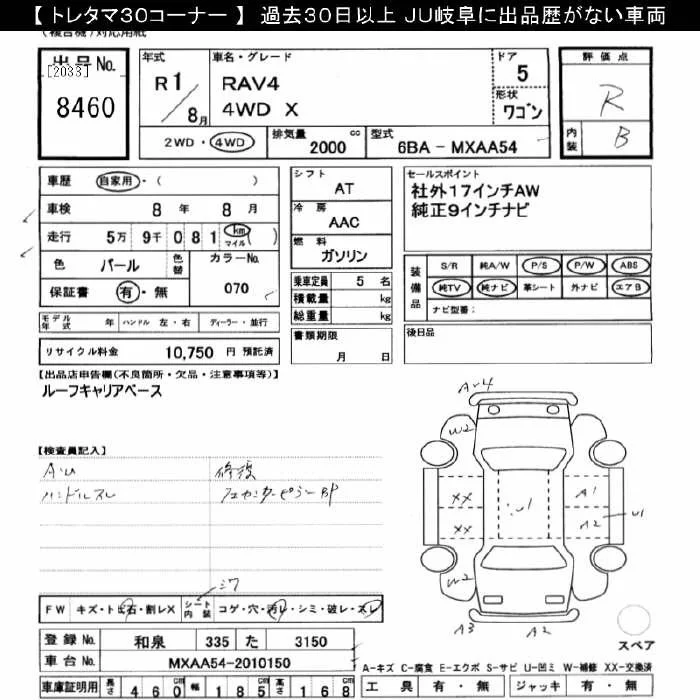 【 トレタマ30コーナー 】 過去30日以上 JU岐阜に出品歴がない車両
(複合機)対応用紙
出品No.
[2033]
8460
年式
R1
8月
車名・グレード
RAV4
4WD X
ドア
5
形状
ワゴン
2WD・4WD
排気量
2000 cc
型式
6BA - MXAA54
評価点
R
内装
B
車歴 自家用・( )
車検 8 年 8 月
走行 5万 9千 0 8 1 km マイル ( )
色 パール 色替
カラーNo.
070
保証書 有・無
シフト
AT
冷房
AAC
燃料
ガソリン
乗車定員 5 名
積載量 kg
総重量 kg
書類期限
月 日
セールスポイント
社外17インチAW
純正9インチナビ
装備品
S/R 純A/W P/S P/W ABS
純TV 純ナビ 革シート 外ナビ エアB
ナビ型番:
後日品
モデル年式 年 ハンドル 左・右 ディーラー・並行
リサイクル料金 10,750 円 預託済
【出品店申告欄(不良箇所・欠品・注意事項等)】
ルーフキャリアベース
【検査員記入】
A・U
ハンドルスレ
修復
フロセンターピラーBP
A-4
W2
XX
XX
W2
U1
A1
A2
U1
A3
A2
シワ
FW キズ・ト石・割レX
シート内装 コゲ・穴・汚レ・シミ・破レ・スレ
スペア
登録 No. 和泉 335 た 3150
車台 No. MXAA54-2010150
A-キズ C-腐食 E-エクボ S-サビ U-凹ミ W-補修 XX-交換済
車庫証明用 長さ 460cm 幅 185cm 高さ 168cm
工具 有・無 ジャッキ 有・無